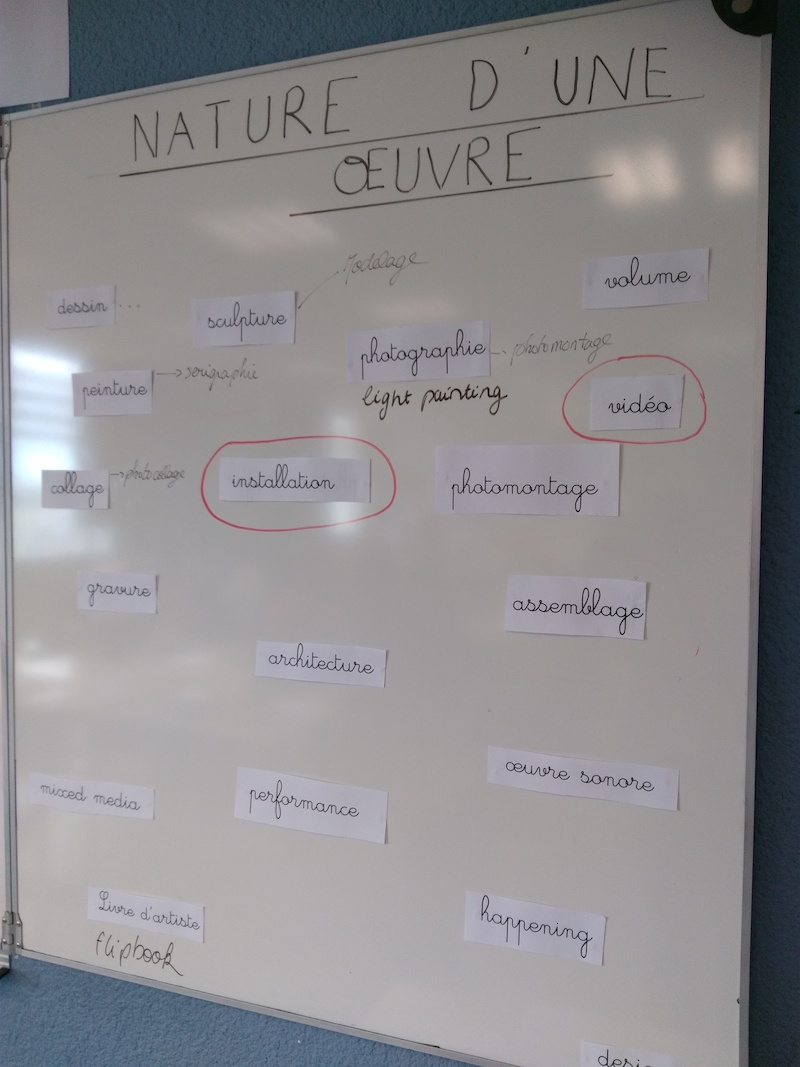 NATURE D'UNE
ŒUVRE
Modelage
volume
dessin ...
sculpture
photographie
photomontage
light painting
peinture
serigraphie
vidéo
collage
photocollage
installation
photomontage
gravure
assemblage
architecture
œuvre sonore
mixed media
performance
Livre d'artiste
flipbook
happening